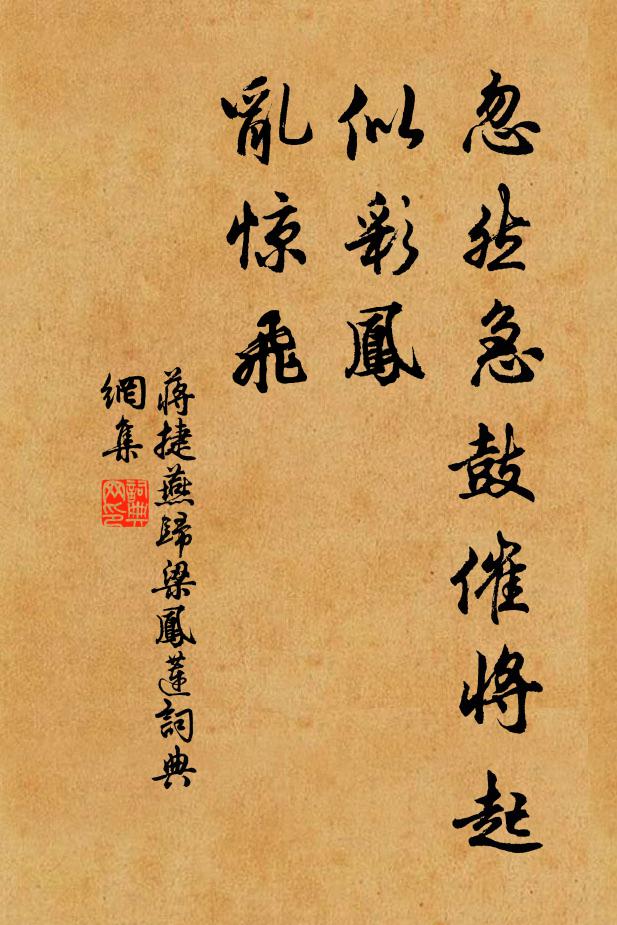 忽然急鼓催将起
似彩鳳
亂惊飛
蔣捷燕歸梁鳳蓮詞典
網集
詞典
网印